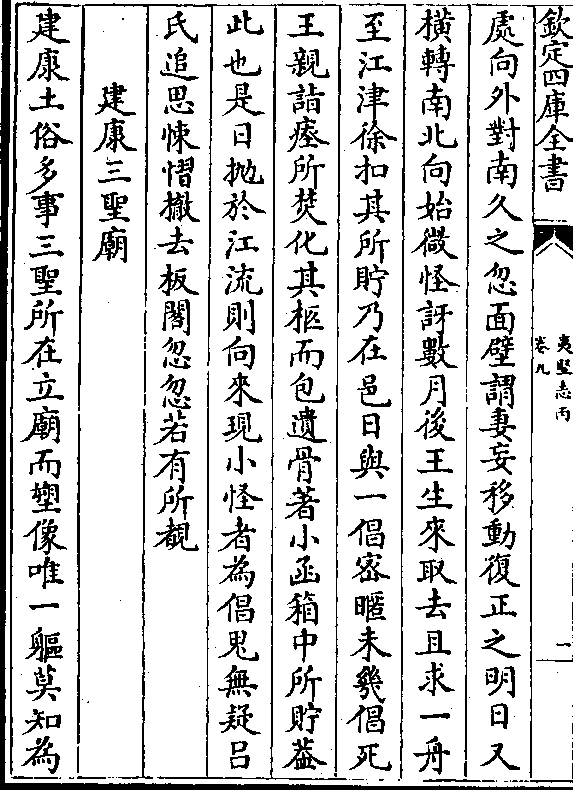 欽定四庫全書
夷堅志丙
卷九
二
處向外對南久之忽面壁謂妻妄移動復正之明日又
橫轉南北向始微怪訝數月後王生來取去且求一舟
至江津徐扣其所貯乃在邑日與一倡宻暱未㡬倡死
王親詣瘞所焚化其柩而包遺骨著小函箱中所貯葢
此也是日抛於江流則向來現小怪者為倡鬼無疑吕
氏追思悚慴撤去板閣忽忽若有所覩
建康三聖廟
建康土俗多事三聖所在立廟而塑像唯一軀莫知為